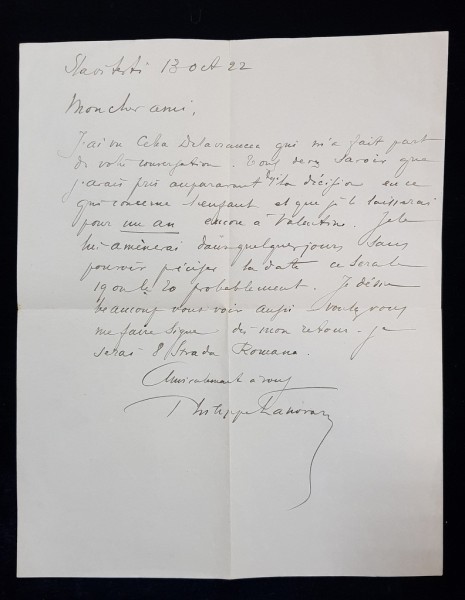 13 oct 22
Mon cher ami,
J'ai vu Cella Delavrancea qui m'a fait part
de votre conversation. Vous devez savoir que
j'avais pris auparavant déjà la décision en ce
qui concerne l'enfant et que je le laisserai
pour un an encore à Valentine. Je le
lui amènerai dans quelques jours sans
pouvoir préciser la date ce sera le
19 ou le 20 probablement. Je désire
beaucoup vous voir aussi voulez vous
me faire signe dès mon retour. Je
serai 8 Strada Romana.
Amicalement à vous
Philippe